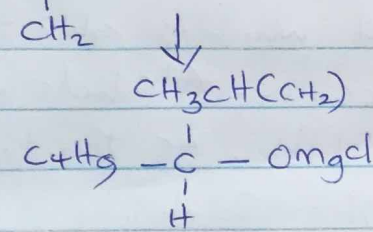 CH2
CH3CH(CH2)
C4H9 - C - OMgCl
H